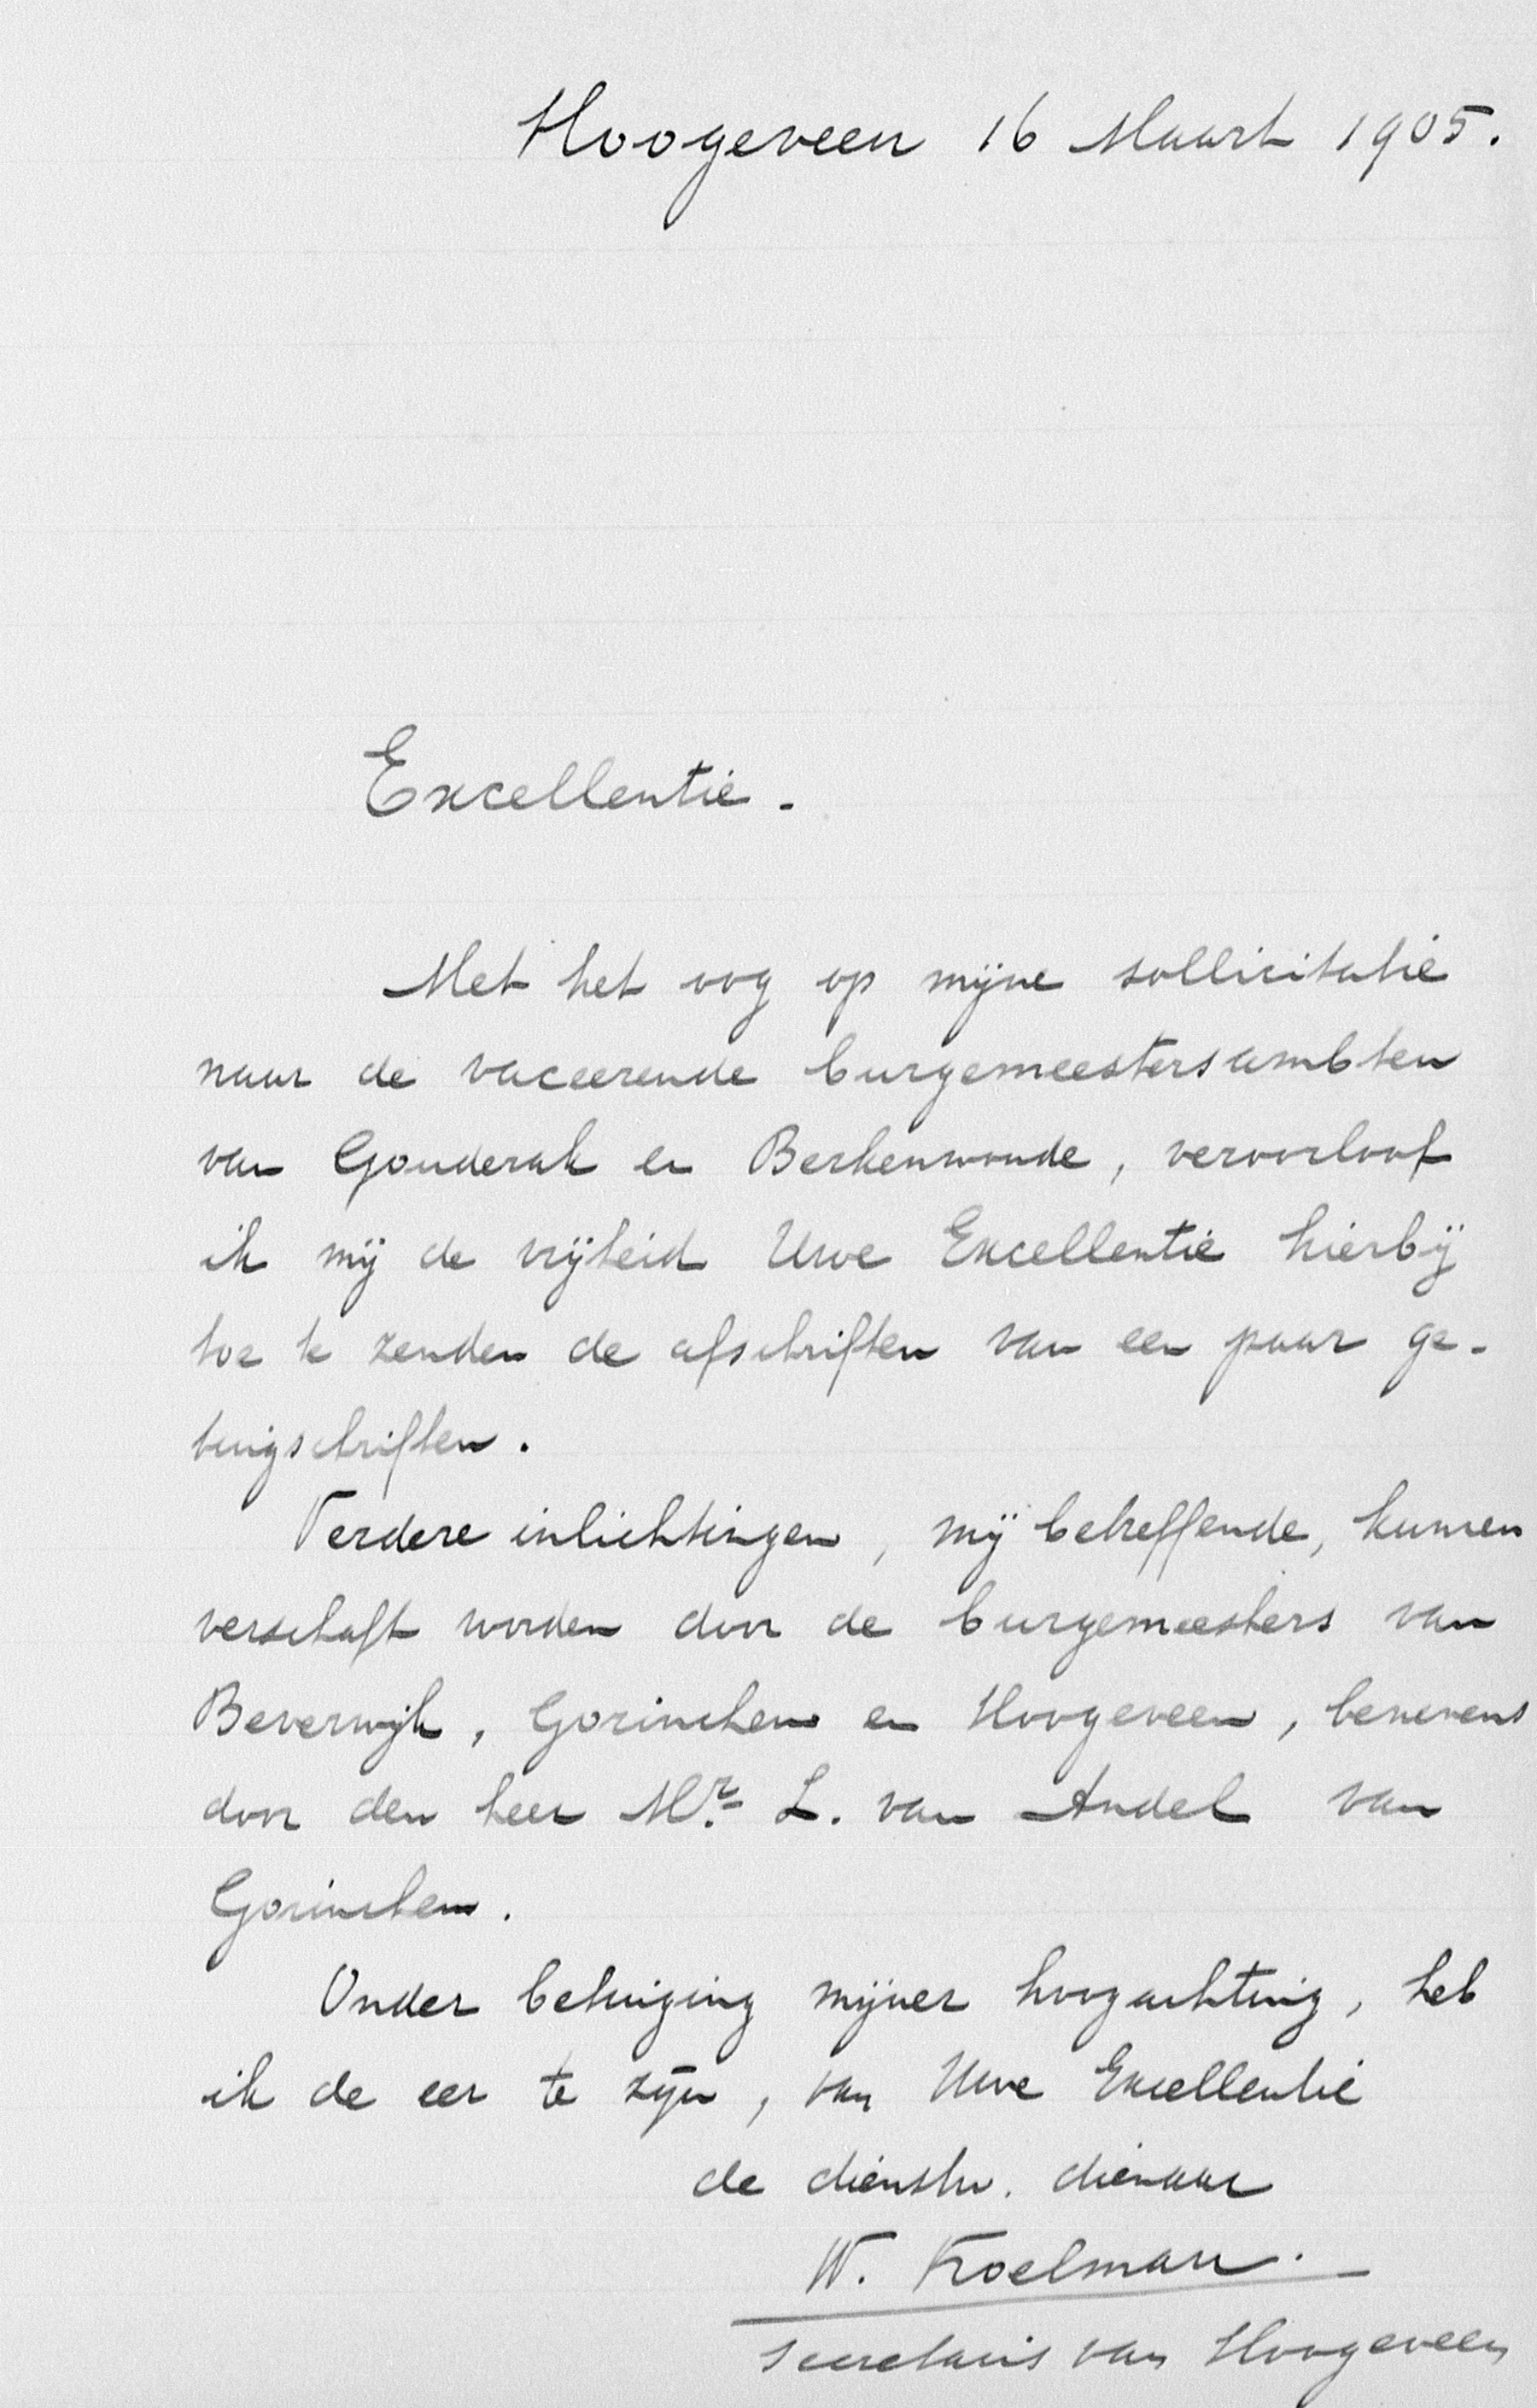 Hoogeveen 16 Maart 1905.
Excellentie.
Met het oog op mijne sollicitatie
naar de vaceerende burgemeestersambten
van Gouderak en Berkenwoude, veroorloof
ik mij de vrijheid Uwe Excellentie hierbij
toe te zenden de afschriften van een paar ge-
tuigschriften.
Verdere inlichtingen, mij betreffende, kunnen
verschaft worden door de burgemeesters van
Beverwijk, Gorinchem en Hoogeveen, benevens
door den heer Mr. L. van Andel van
Gorinchem.
Onder betuiging mijner hoogachting, heb
ik de eer te zijn, van Uwe Excellentie
de dienstw. dienaar
W. Koelman.
secretaris van Hoogeveen